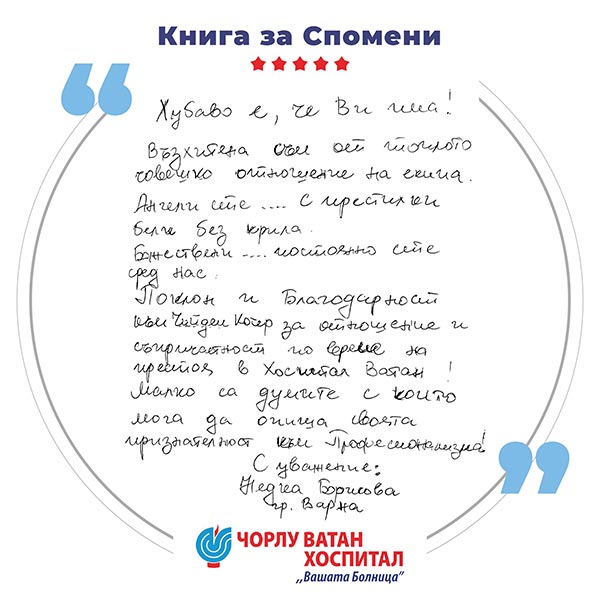 Книга за Спомени
Хубаво е, че Ви има!
Възхитена съм от топлото
човешко отношение на екипа.
Ангели сте .... с престилки
бели без крила.
Божествени .... постоянно сте
сред нас.
Поклон и Благодарност
към Чийдем Кочер за отношение и
съпричастност по време на
престоя в Хоспитал Ватан!
Малко са думите с които
мога да опиша своята
признателност към Професионализма!
С уважение:
Недка Борисова
гр. Варна
ЧОРЛУ ВАТАН
ХОСПИТАЛ
,,Вашата Болница"